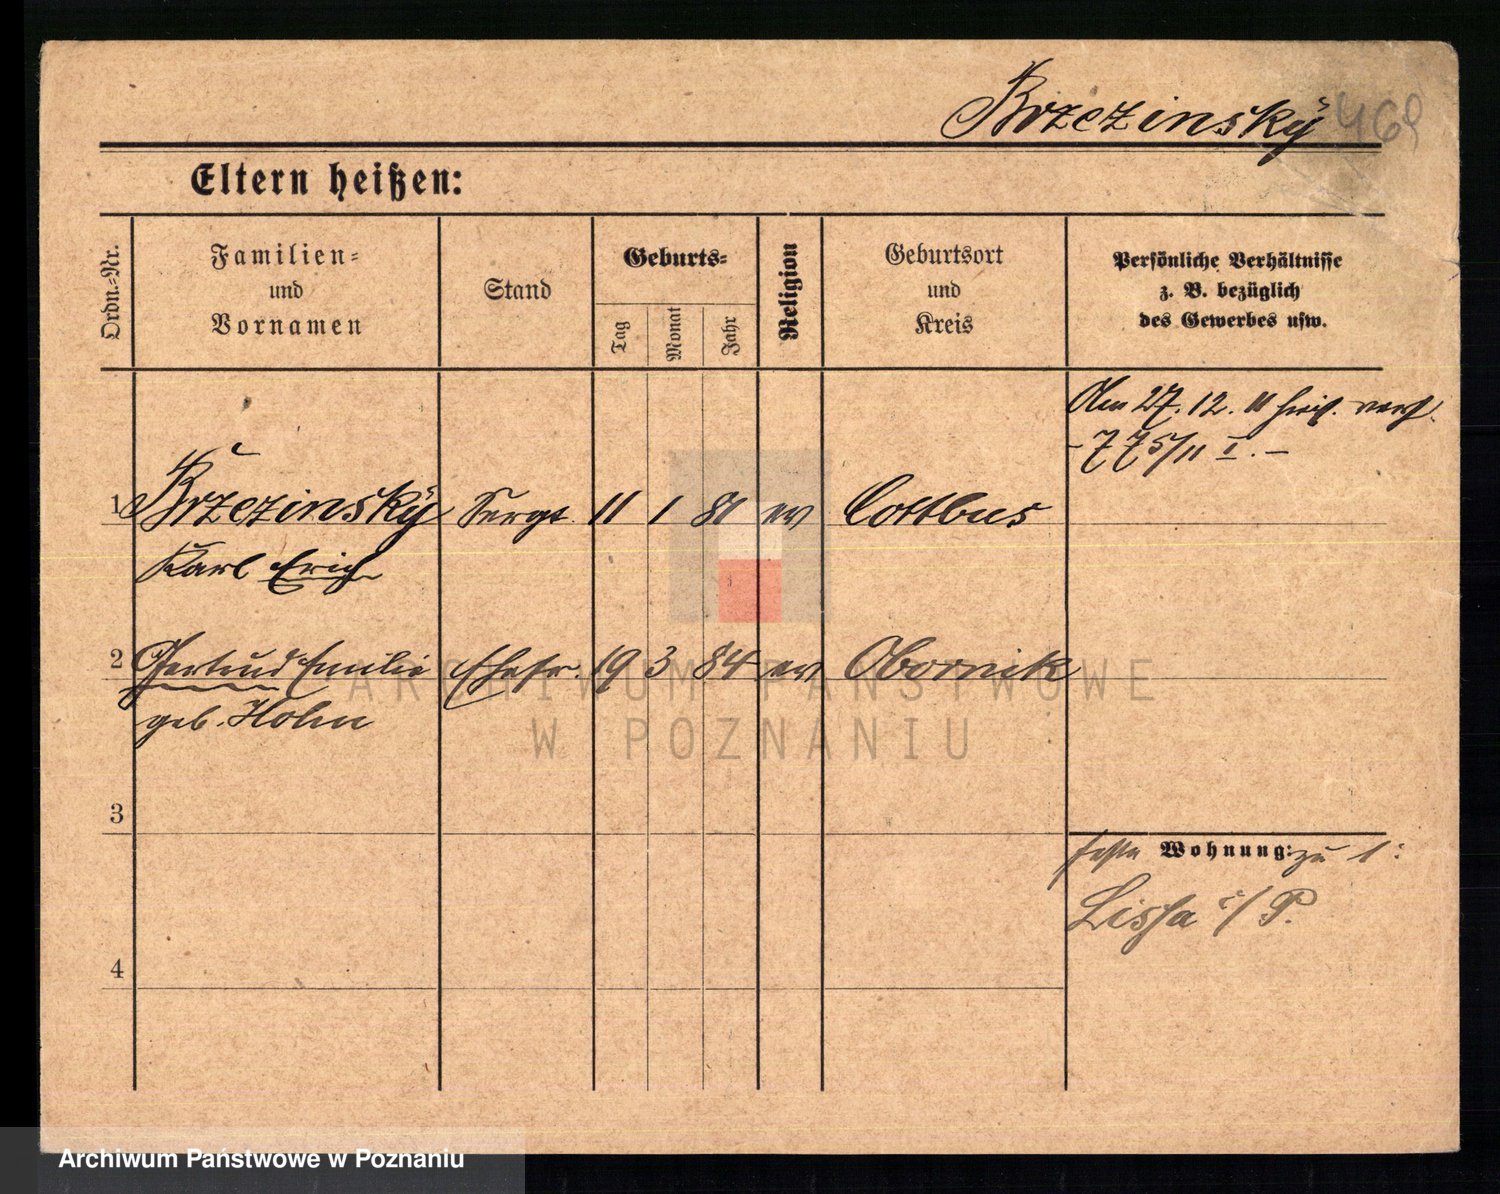 Brzezinsky 469
Eltern heißen:
Ordn.-Nr.
Familien-
und
Vornamen
Stand
Geburts-
Tag
Monat
Jahr
Religion
Geburtsort
und
Kreis
Persönliche Verhältnisse
z. B. bezüglich
des Gewerbes usw.
Am 27. 12. 11
- 775/11 I. -
1 Brzezinsky Sergt. 11 1 81 ev Cottbus
Karl Erich
2 Gertrud Emilie Ehefr. 19 3 84 ev Obornik
geb. Hohn
3
feste Wohnung: zu 1:
Lissa i/P.
4
ARCHIWUM PAŃSTWOWE
W POZNANIU
Archiwum Państwowe w Poznaniu